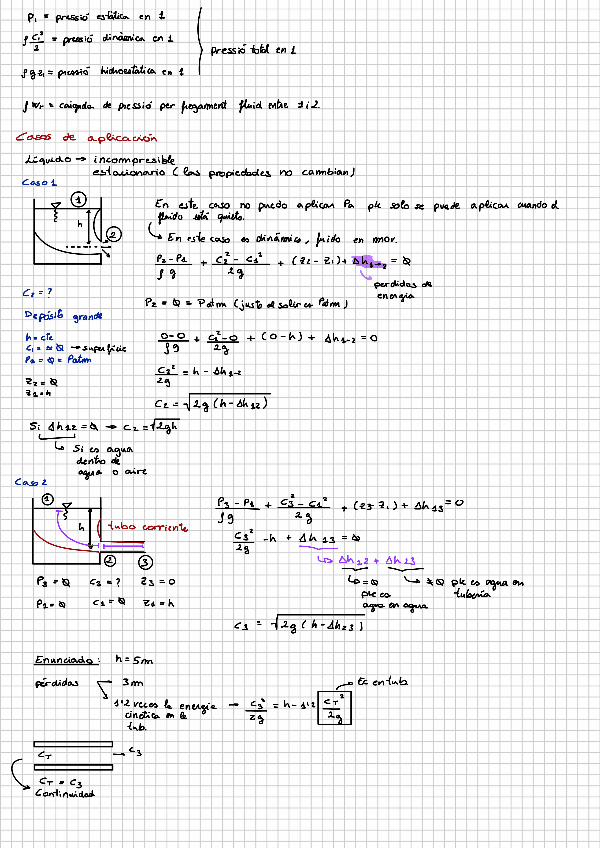 P₁ = pressió estàtica en 1
ρ c₁²/2 = pressió dinàmica en 1
pressió total en 1
ρ g z₁ = pressió hidrostàtica en 1
ρ Wr = caiguda de pressió per fregament fluid entre 1 i 2.
Casos de aplicación
Líquido → incompresible
estacionario (las propiedades no cambian)
Caso 1
1
h
2
En este caso no puedo aplicar Pa pk solo se puede aplicar cuando el
fluido está quieto.
↳ En este caso es dinámico, fluido en mov.
(P₂ - P₁)/(ρ g) + (C₂² - C₁²)/(2g) + (Z₂ - Z₁) + Δh₁₋₂ = 0
perdidas de
energía
C₂ = ?
Depósito grande
P₂ = 0 = Patm (justo al salir es Patm)
h = cte
C₁ = 0 → superficie
P₁ = 0 = Patm
Z₂ = 0
Z₁ = h
(0-0)/(ρg) + (C₂² - 0)/(2g) + (0-h) + Δh₁₋₂ = 0
C₂²/2g = h - Δh₁₋₂
C₂ = √(2g (h - Δh₁₂))
Si Δh₁₂ = 0 → C₂ = √2gh
↳ Si es agua
dentro de
agua o aire
Caso 2
1
h
tubo corriente
2 3
(P₃ - P₁)/(ρg) + (C₃² - C₁²)/(2g) + (Z₃ - Z₁) + Δh₁₃ = 0
C₃²/2g - h + Δh₁₃ = 0
↳ Δh₁₂ + Δh₂₃
↳ = 0 pk es agua en agua
↳ ≠ 0 pk es agua en tubería
P₃ = 0 C₃ = ? Z₃ = 0
P₁ = 0 C₁ = 0 Z₁ = h
C₃ = √(2g (h - Δh₂₃))
Enunciado: h = 5m
pérdidas → 3m
1'2 veces la energía cinética en la tub. → C₃²/2g = h - 1'2 C_T²/2g
Ec en tub
C_T → C₃
C_T = C₃
Continuidad